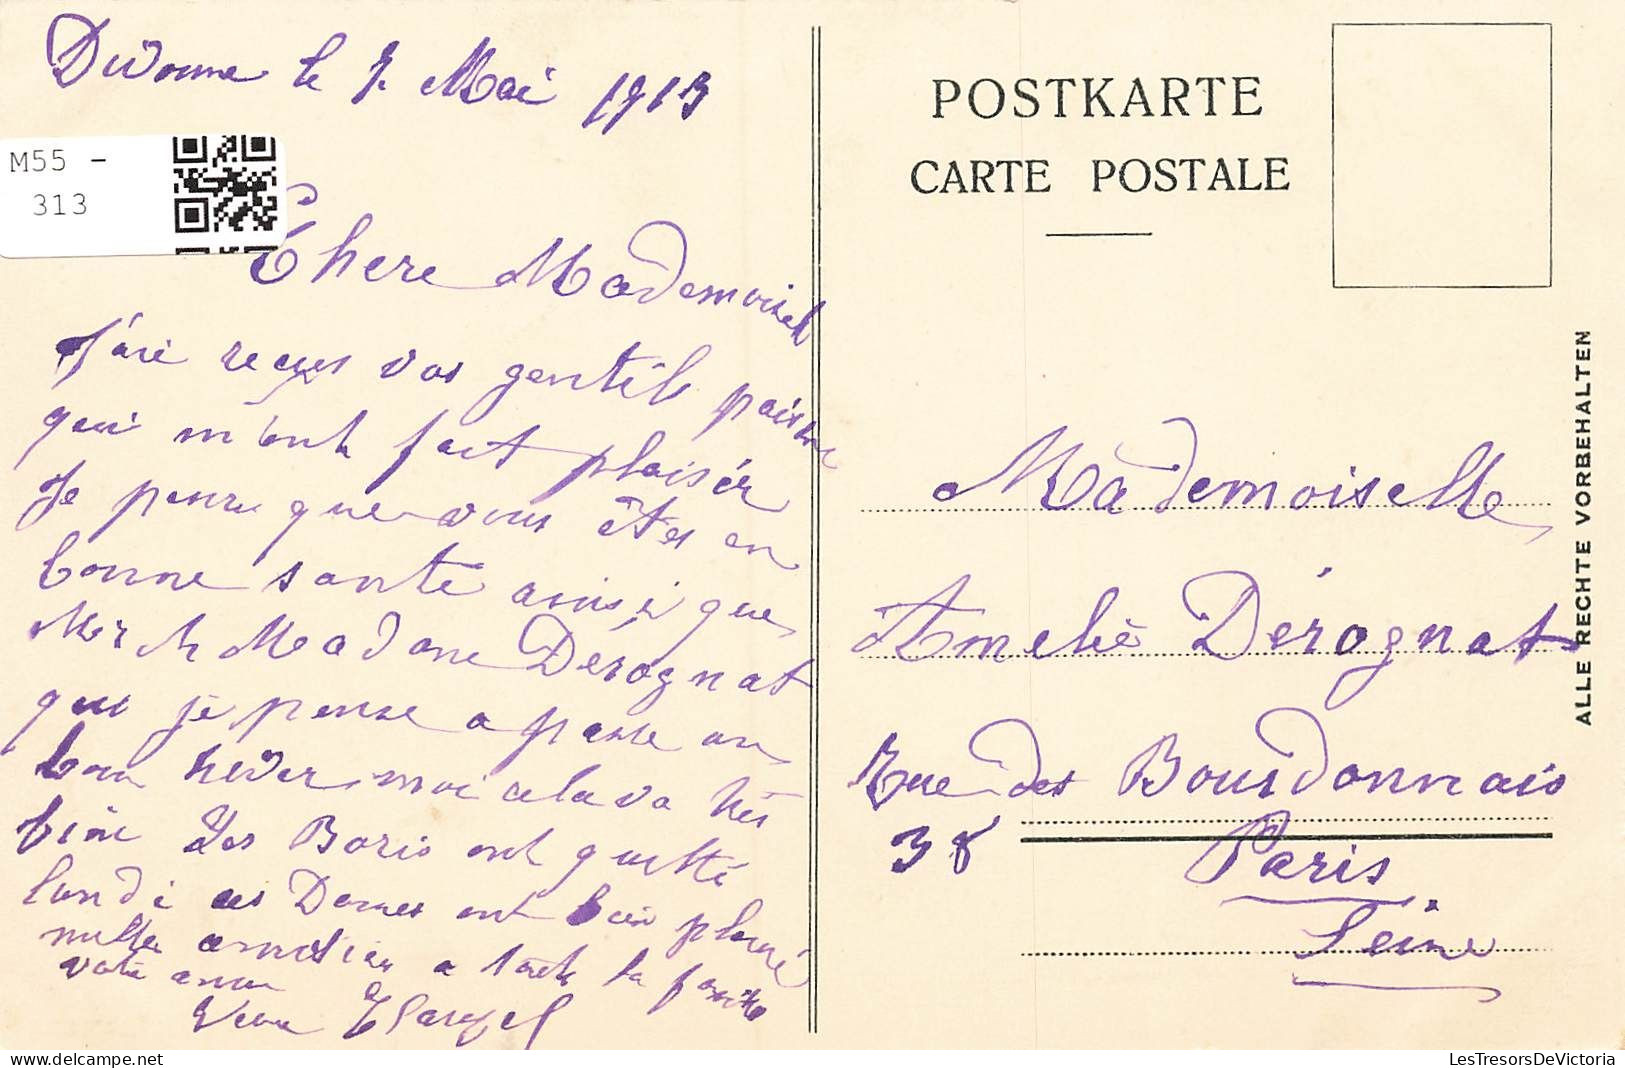 Divonne le 7 Mai 1913
M55 -
313
Chere Mademoisel
J'ai reçues vos gentils poissons
qui m'ont fait plaisir
Je pense que vous êtes en
bonne santé ainsi que
Mer et Madame Dérognat
que je pense a passe un
bon hever moi cela va très
bien Les Boris ont quitté
lundi ces Dames ont bien pleuré
mille amitier a toute la famille
votre amie
Zhargel
POSTKARTE
CARTE POSTALE
Mademoiselle
Amelie Dérognat
Rue des Bourdonnais
38
Paris
Seine
ALLE RECHTE VORBEHALTEN
LesTresorsDeVictoria